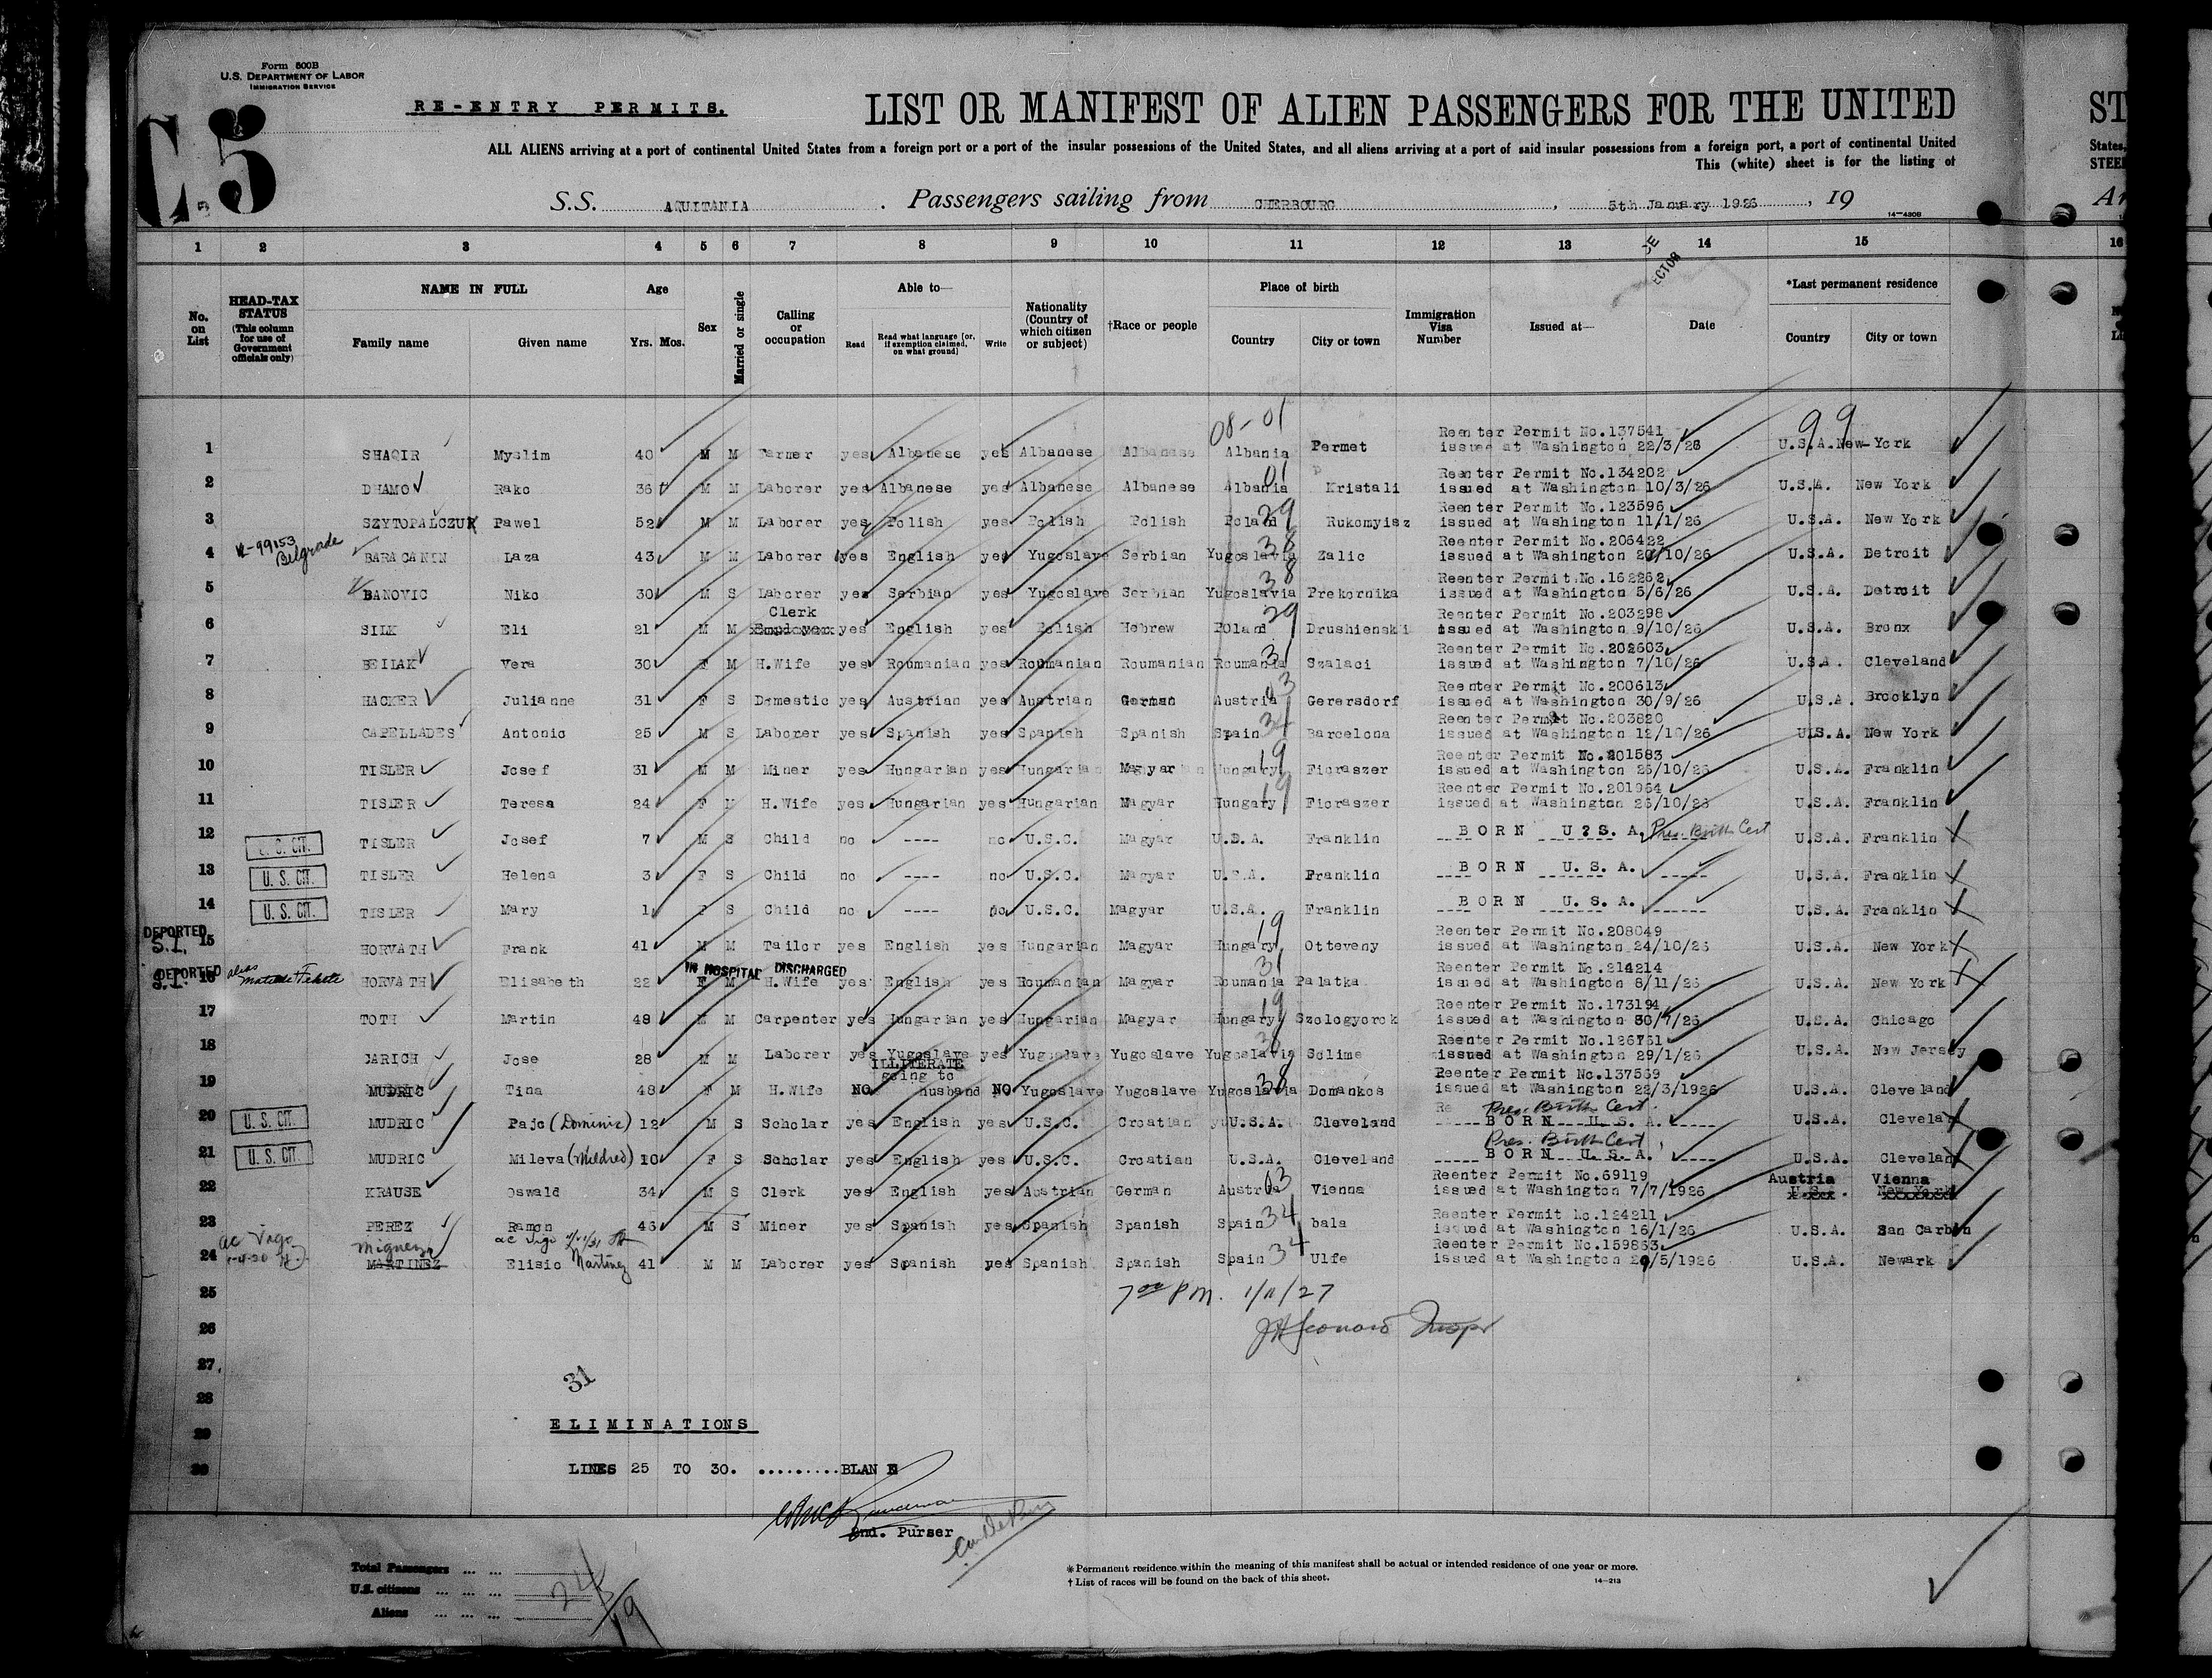 Form 500B
U.S. DEPARTMENT OF LABOR
IMMIGRATION SERVICE
C 5
RE-ENTRY PERMITS.
LIST OR MANIFEST OF ALIEN PASSENGERS FOR THE UNITED ST
ALL ALIENS arriving at a port of continental United States from a foreign port or a port of the insular possessions of the United States, and all aliens arriving at a port of said insular possessions from a foreign port, a port of continental United States,
This (white) sheet is for the listing of STEE
S.S. AQUITANIA . Passengers sailing from CHERBOURG , 5th January 1926 , 19 Ar
14—4808
1 2 3 4 5 6 7 8 9 10 11 12 13 14 15 16
No. on List
HEAD-TAX STATUS (This column for use of Government officials only)
NAME IN FULL
Family name Given name
Age
Yrs. Mos.
Sex
Married or single
Calling or occupation
Able to—
Read
Read what language [or, if exemption claimed, on what ground]
Write
Nationality (Country of which citizen or subject)
†Race or people
Place of birth
Country City or town
Immigration Visa Number
Issued at—
Date
*Last permanent residence
Country City or town
08-01 99
1 SHAQIR Myslim 40 M M Farmer yes Albanese yes Albanese Albanese Albania Permet Reenter Permit No.137541 issued at Washington 22/3/26 U.S.A. New-York
2 DHAMO Rako 36 M M Laborer yes Albanese yes Albanese Albanese Albania 01 Kristali Reenter Permit No.134202 issued at Washington 10/3/26 U.S.A. New York
3 SZYTOPALCZUK Pawel 52 M M Laborer yes Polish yes Polish Polish Poland 29 Rukomyisz Reenter Permit No.123596 issued at Washington 11/1/26 U.S.A. New York
4 Belgrade BARACANIN Laza 43 M M Laborer yes English yes Yugoslave Serbian Yugoslavia 38 Zalic Reenter Permit No.206422 issued at Washington 20/10/26 U.S.A. Detroit
5 BANOVIC Niko 30 M S Laborer yes Serbian yes Yugoslave Serbian Yugoslavia 38 Prekornika Reenter Permit No.162262 issued at Washington 5/6/26 U.S.A. Detroit
6 SILK Eli 21 M M Clerk yes English yes Polish Hebrew Poland 29 Drushienski Reenter Permit No.203298 issued at Washington 9/10/26 U.S.A. Bronx
7 BEILAK Vera 30 F M H.Wife yes Roumanian yes Roumanian Roumanian Roumania 31 Szalaci Reenter Permit No.202603 issued at Washington 7/10/26 U.S.A. Cleveland
8 HACKER Julianne 31 F S Domestic yes Austrian yes Austrian German Austria 03 Gerersdorf Reenter Permit No.200613 issued at Washington 30/9/26 U.S.A. Brooklyn
9 CAPELLADES Antonio 25 M S Laborer yes Spanish yes Spanish Spanish Spain 34 Barcelona Reenter Permit No.203820 issued at Washington 12/10/26 U.S.A. New York
10 TISLER Josef 31 M M Miner yes Hungarian yes Hungarian Magyar Hungary 19 Fioraszer Reenter Permit No.201583 issued at Washington 25/10/26 U.S.A. Franklin
11 TISLER Teresa 24 F M H.Wife yes Hungarian yes Hungarian Magyar Hungary 19 Fioraszer Reenter Permit No.201964 issued at Washington 25/10/26 U.S.A. Franklin
12 U. S. CIT. TISLER Josef 7 M S Child no ---- no U.S.C. Magyar U.S.A. Franklin BORN U?S. A. Pres. Birth Cert U.S.A. Franklin
13 U. S. CIT. TISLER Helena 3 F S Child no ---- no U.S.C. Magyar U.S.A. Franklin BORN U. S. A. U.S.A. Franklin
14 U. S. CIT. TISLER Mary 1 F S Child no ---- no U.S.C. Magyar U.S.A. Franklin BORN U. S. A. U.S.A. Franklin
DEPORTED S.I. 15 HORVATH Frank 41 M M Tailor yes English yes Hungarian Magyar Hungary 19 Otteveny Reenter Permit No.208049 issued at Washington 24/10/26 U.S.A. New York
IN HOSPITAL DISCHARGED
DEPORTED S.I. 16 alias HORVATH Elisabeth 22 F M H.Wife yes English yes Roumanian Magyar Roumania 31 Palatka Reenter Permit No.214214 issued at Washington 8/11/26 U.S.A. New York
17 TOTH Martin 48 M M Carpenter yes Hungarian yes Hungarian Magyar Hungary 19 Szologyorok Reenter Permit No.173194 issued at Washington 30/7/26 U.S.A. Chicago
18 CARICH Jose 28 M M Laborer yes Yugoslave yes Yugoslave Yugoslave Yugoslavia 38 Solime Reenter Permit No.126751 issued at Washington 29/1/26 U.S.A. New Jersey
19 MUDRIC Tina 48 F M H.Wife NO ILLITERATE going to husband NO Yugoslave Yugoslave Yugoslavia 38 Domankos Reenter Permit No.137569 issued at Washington 22/3/1926 U.S.A. Cleveland
20 U. S. CIT. MUDRIC Pajo (Dominic) 12 M S Scholar yes English yes U.S.C. Croatian U.S.A. Cleveland Pres. Birth Cert. BORN U. S. A. U.S.A. Cleveland
21 U. S. CIT. MUDRIC Mileva (Mildred) 10 F S Scholar yes English yes U.S.C. Croatian U.S.A. Cleveland Pres. Birth Cert BORN U.S.A. U.S.A. Cleveland
22 KRAUSE Oswald 34 M S Clerk yes English yes Austrian German Austria 03 Vienna Reenter Permit No.69119 issued at Washington 7/7/1926 Austria Vienna
23 PEREZ Ramon 46 M S Miner yes Spanish yes Spanish Spanish Spain 34 bala Reenter Permit No.124211 issued at Washington 16/1/26 U.S.A. San Carbon
24 ac Vigo Miguez MARTINEZ Elisio Martinez 41 M M Laborer yes Spanish yes Spanish Spanish Spain 34 Ulfe Reenter Permit No.159863 issued at Washington 29/5/1926 U.S.A. Newark
25 7 00 P.M. 1/11/27
26 Inspr
27
28
29
30
31
ELIMINATIONS
LINES 25 TO 30. .........BLANK
2nd. Purser
Total Passengers ... ...
U.S. citizens ... ... ...
Aliens ... ... ...
24
5
19
*Permanent residence within the meaning of this manifest shall be actual or intended residence of one year or more.
†List of races will be found on the back of this sheet.
14—213